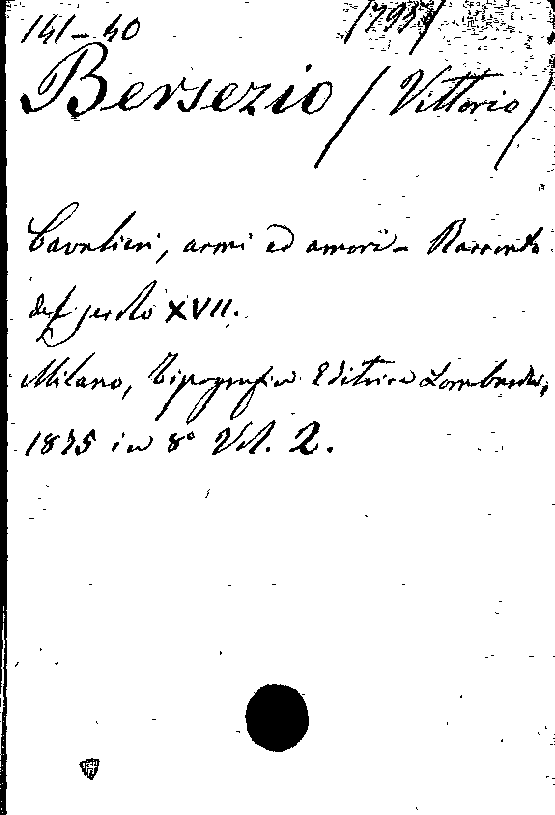 141-40
Bersezio (Vittorio)
Cavalieri, armi ed amori - Racconto
del secolo XVII.
Milano, Tipografia Editrice Lombarda,
1875 in 8° Vol. 2.